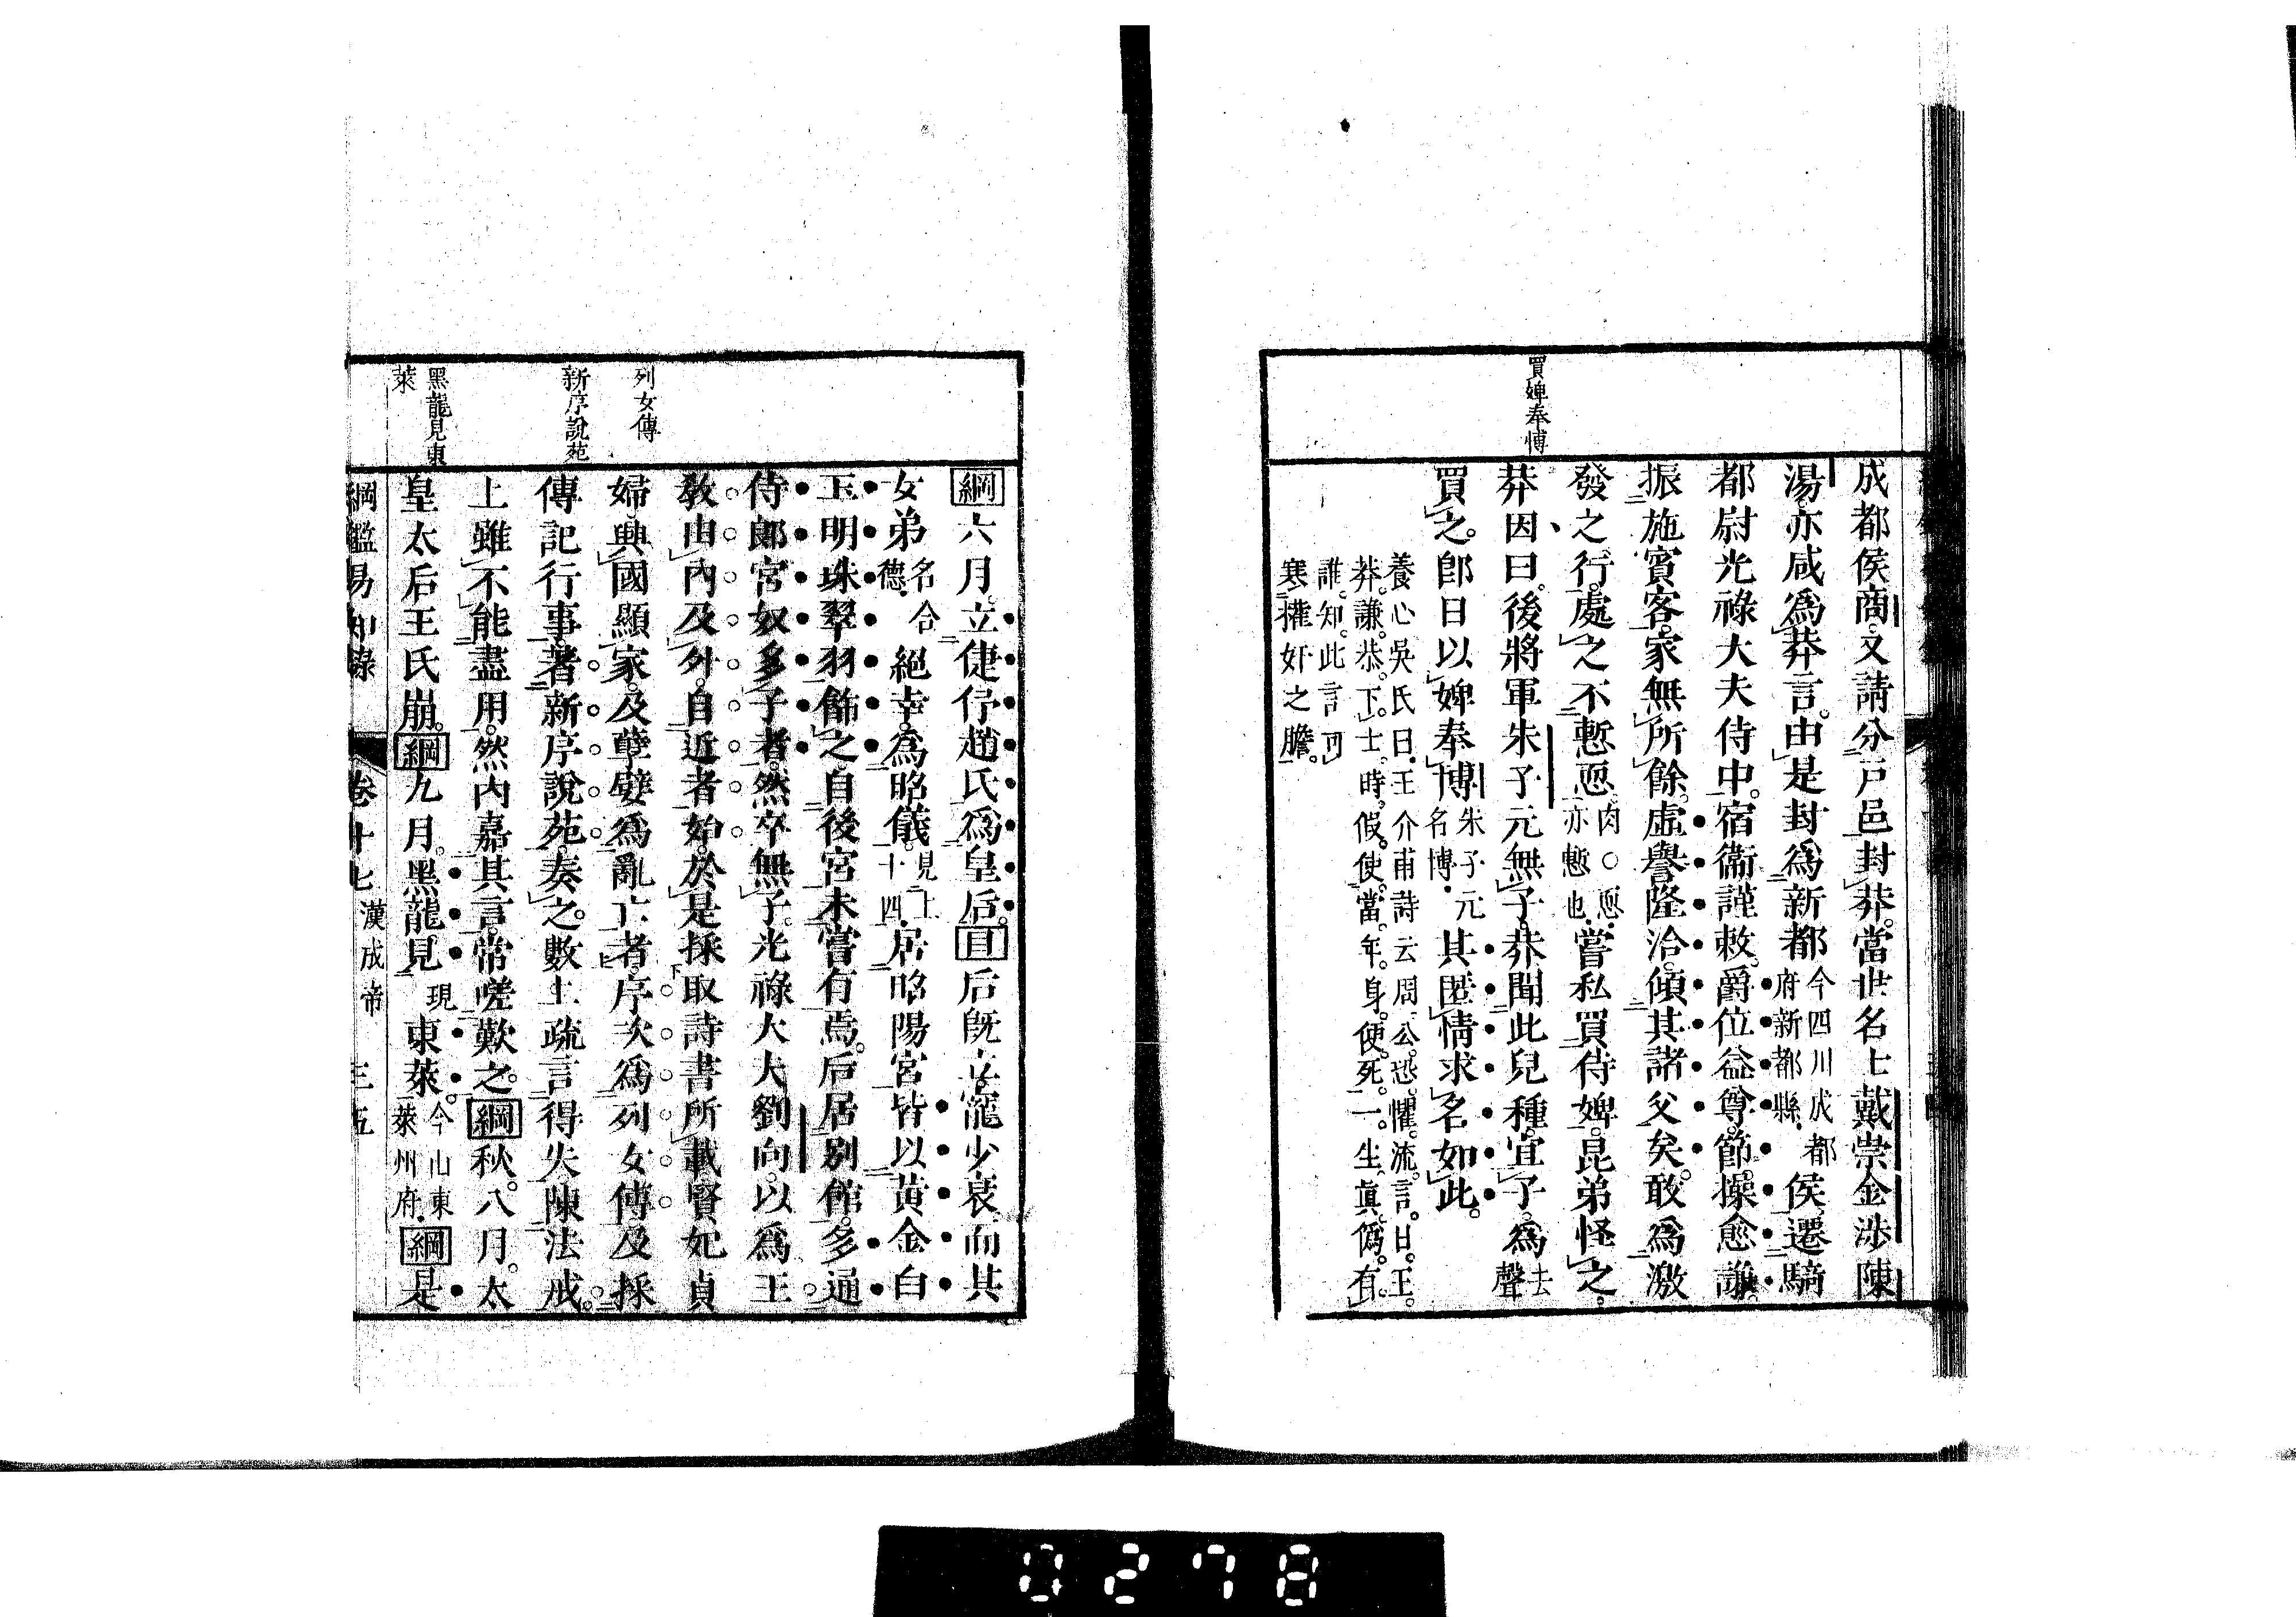 買婢奉博
成都侯商。又請分戶邑封莽。當世名士戴崇金涉陳
湯。亦咸爲莽言。由是封爲新都今四川成都府新都縣。侯。遷騎
都尉光祿大夫侍中。宿衞謹敕。爵位益尊。節操愈謙。
振施賓客。家無所餘。虛譽隆洽。傾其諸父矣。敢爲激
發之行。處之不慙恧。肉○恧亦慙也。嘗私買侍婢。昆弟怪之。
莽因曰。後將軍朱子元無子。莽聞此兒種宜子。爲去聲
買之。卽日以婢奉博。朱子元名博。其匿情求名如此。
養心吳氏曰。王介甫詩云周公恐懼流言日。王
莽謙恭下士時。假使當年身便死。一生眞僞有
誰知。此言可
寒權奸之膽。
列女傳
新序說苑
黑龍見東
萊
綱六月。立倢伃趙氏爲皇后。目后旣立。寵少衰。而其
女弟名合德。絕幸。爲昭儀。見上十四。居昭陽宮。皆以黃金白
玉明珠翠羽餙之。自後宮未嘗有焉。后居別館。多通
侍郎宮奴多子者。然卒無子。光祿大夫劉向。以爲王
敎由內及外。自近者始。於是採取詩書所載賢妃貞
婦。興國顯家。及孽嬖爲亂亡者。序次爲列女傳。及採
傳記行事。著新序說苑。奏之。數上疏言得失。陳法戒。
上雖不能盡用。然內嘉其言。常嗟歎之。綱秋。八月。太
皇太后王氏崩。綱九月。黑龍見現東萊。今山東萊州府。綱是
綱鑑易知錄　卷十七　漢成帝　三五
0278